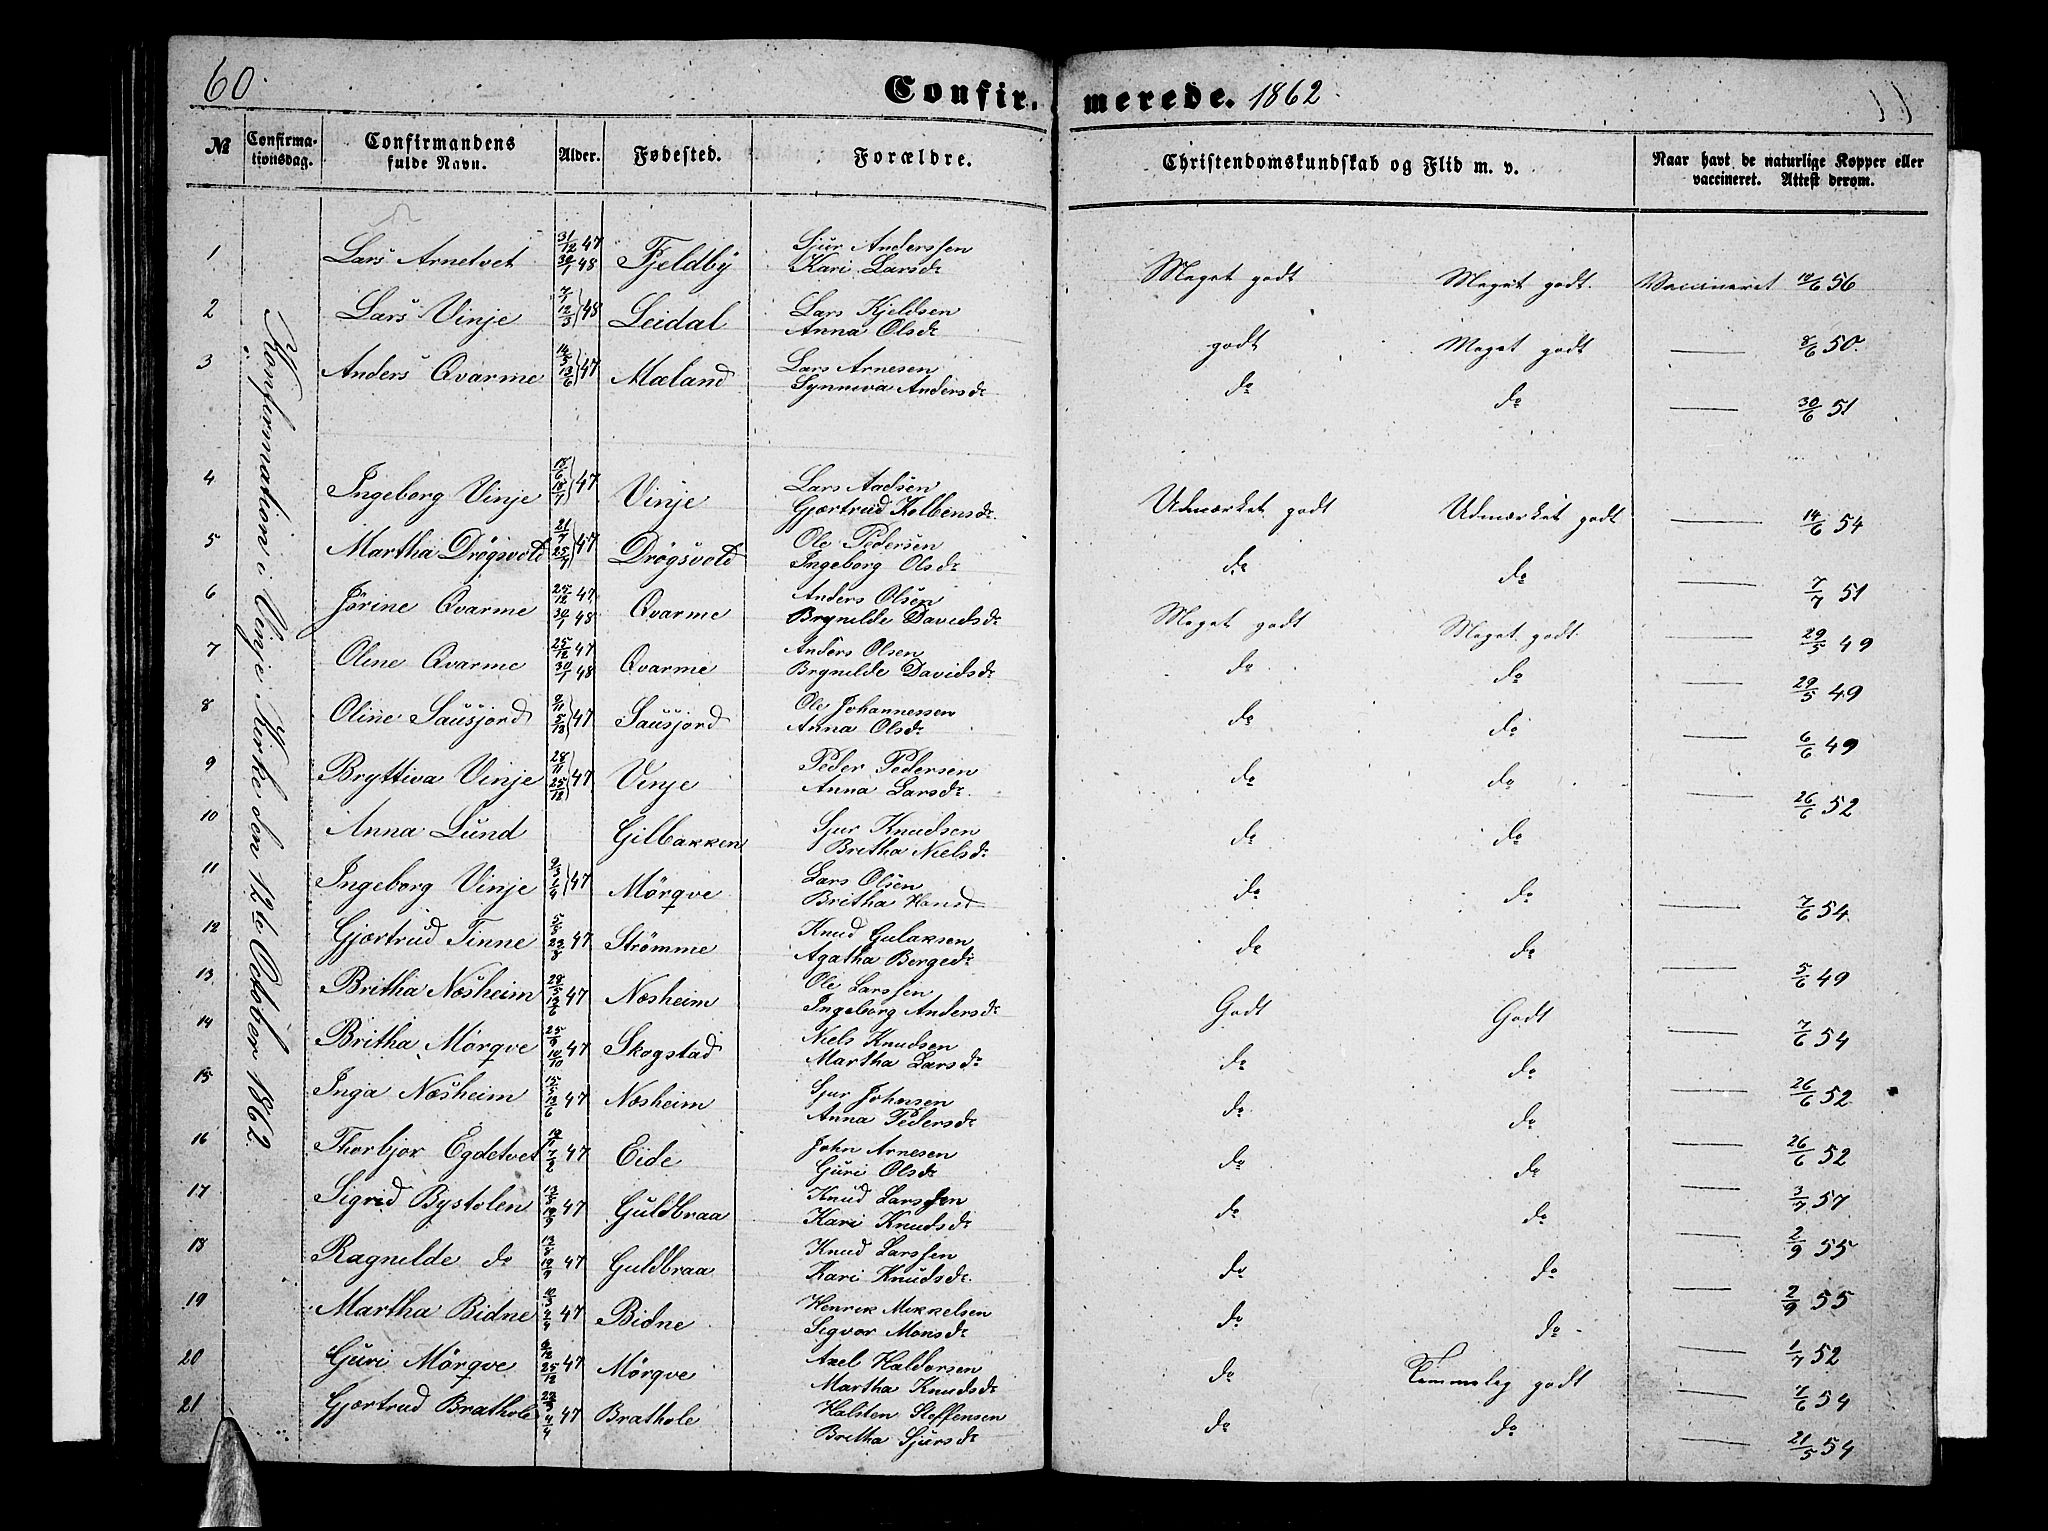 60.
Confir- merede. 1862
№
Confirma-
tionsdag.
Confirmandens
fulde Navn.
Alder.
Fødested.
Forældre.
Christendomskundskab og Flid m. v.
Naar havt de naturlige Kopper eller
vaccineret. Attest derom.
Konfirmation i Vinje Kirke den 12te October 1862.
1 Lars Arnetvet 31/12 47 30/1 48 Fjeldby Sjur Anderssen
Kari Larsdr Meget godt Meget godt. Vaccineret 10/6 56
2 Lars Vinje 7/1 12/3 48 Leidal Lars Kjeldsen
Anna Olsdr godt Meget godt — 8/6 50.
3 Anders Qvarme 14/5 13/6 47 Mæland Lars Arnesen
Synneva Andersdr do do — 30/6 51
4 Ingeborg Vinje 47 Vinje Lars Aadsen
Gjærtrud Kolbensdr. Udmærket godt Udmærket godt — 14/6 54
5 Martha Drøgsvold 47 Drøgsvold Ole Pedersen
Ingeborg Olsdr do do — 7/7 51
6 Jørine Qvarme 25/12 47 30/1 48 Qvarme Anders Olsen
Brynilde Davidsdr Meget godt Meget godt. — 29/5 49
7 Oline Qvarme 25/12 47 30/1 48 Qvarme Anders Olsen
Brynilde Davidsdr do do — 29/5 49
8 Oline Sausjord 47 Sausjord Ole Johannessen
Anna Olsdr do do — 6/6 49
9 Bryttiva Vinje 28/11 25/12 47 Vinje Peder Pedersen
Anna Larsdr. do do — 26/6 52
10 Anna Lund Gilbakken Sjur Knudsen
Britha Nielsdr do do
11 Ingeborg Vinje 9/3 1/4 47 Mörqve Lars Olsen
Britha Hansd do do — 7/6 54
12 Gjærtrud Tinne 47 Strømme Knud Gulaksen
Agatha Bergedr do do — 5/6 49
13 Britha Næsheim 28/5 13/6 47 Næsheim Ole Larssen
Ingeborg Andersdr Godt Godt — 7/6 54
14 Britha Mörqve 25/9 10/10 47 Skogstad Niels Knudsen
Martha Larsdr do do — 26/6 52
15 Inga Næsheim 15/5 13/6 47 Næsheim Sjur Johnsen
Anna Pedersdr do do — 26/6 52
16 Thorbjor Egdetvet 47 Eide John Arnesen
Guri Olsdr do do — 3/7 57
17 Sigrid Bystølen 47 Guldbraa Knud Larssen
Kari Knudsdr do do — 2/9 55
18 Ragnilde do 13/8 19/9 47 Guldbraa Knud Larssen
Kari Knudsdr. do do — 2/9 55
19 Martha Bidne 47 Bidne Henrik Mikkelsen
Sigvor Monsdr do do — 1/7 52
20 Guri Mörqve 47 Mörqve Axel Haldorsen
Martha Knudsdr do Temmelig godt — 7/6 54
21 Gjærtrud Brathole 47 Brathole Halsten Steffensen
Britha Sjursdr do do — 21/5 54